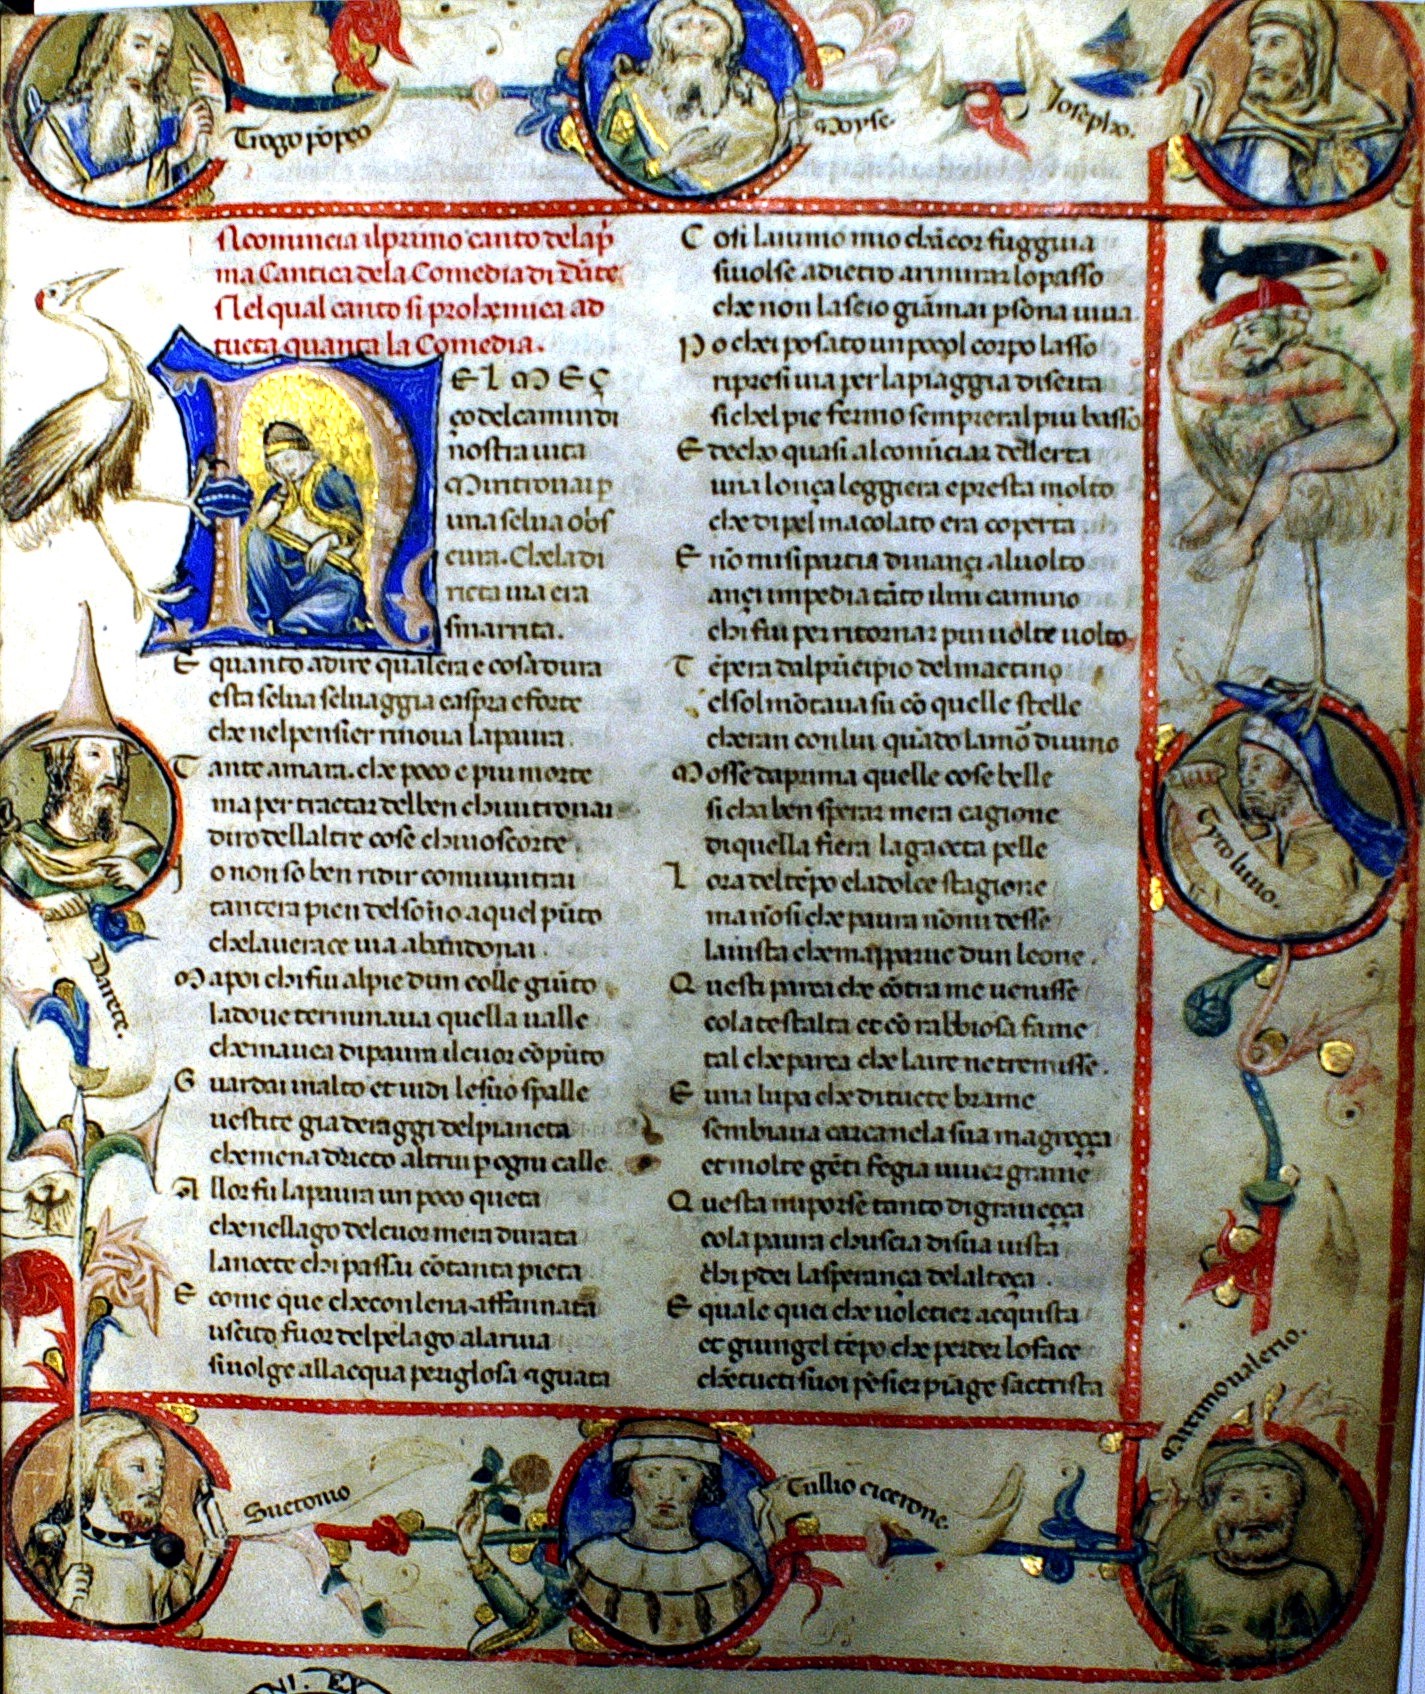 Trogo pōpeo
Moyse
Iosepho.
Nconuncia ilprimo canto delap̄
ma Cantica dela Comedia di Dāte
Nel qual canto si prohemiça ad
tucta quanta la Comedia.
N
EL MEÇ
ço del camin di
nostra uita
Mi ritrouai p
una selua obs
cura. Che la di
ricta uia era
smarrita.
E quanto adire qual era e cosa dura
esta selua seluaggia easpra e forte
che nel pensier rinoua la paura.
Tante amara. che poco e piu morte
ma per tractar del ben chiui trouai
diro dellaltre cose chiuo scorte
Io non so ben ridir comiui ntrai
tantera pien del sōno aquel pūto
che la uerace uia abandonai.
Ma poi chi fui alpie dun colle giūto
la doue terminaua quella ualle
che mauea di paura il cuor cōpūto
Guardai in alto et uidi le suo spalle
uestite gia deraggi del pianeta
che mena dricto altrui p ogni calle.
Allor fu la paura un poco queta
che nellago del cuor mera durata
la nocte chi passai cōtanta pieta
E come que che con lena affannata
uscito fuor del pelago ala riua
si uolge all acqua perigliosa & guata
Cosi lanimo mio chācor fuggiua
si uolse adietro arimirar lo passo
che non lascio giāmai psona uiua.
Po chei posato un poco l corpo lasso
ripresi uia per la piaggia diserta
si chel pie fermo sempreral piu basso
E deccho quasi al cominciar dell erta
una lonça leggiera e presta molto
che di pel macolato era coperta.
E nō misi partia dinançi aluolto
ançi impedia tāto ilmi camino
chi fui per ritornar piu uolte uolto
Tēpera dal prīcipio del mactino
el sol mōtaua su cō quelle stelle
cheran con lui quādo lamō diuino
Mosse daprima quelle cose belle
si cha ben sperar mera cagione
di quella fiera la gaecta pelle
Lora del tēpo ela dolce stagione
ma nō si che paura nō mi desse
la uista che mapparue dun leone.
Questi parea che cōtra me uenisse
cola testalta et cō rabbiosa fame
tal che parea che laire ne tremisse.
E una lupa che di tucte brame
sembiaua carca nela sua magreçça
et molte gēti fegia uiuer grame
Questa mi porse tanto di graueçça
cola paura chuscia di sua uista
chi pdei la sperança del alteça.
E quale quei che uolētier acquista
et giungel tēpo che perder lo face
chē tucti suoi pēsier piāge sactrista
Darete.
Tyto liuio.
Suetonio
Tullio cicerone.
Maximo ualerio.
NI. EX